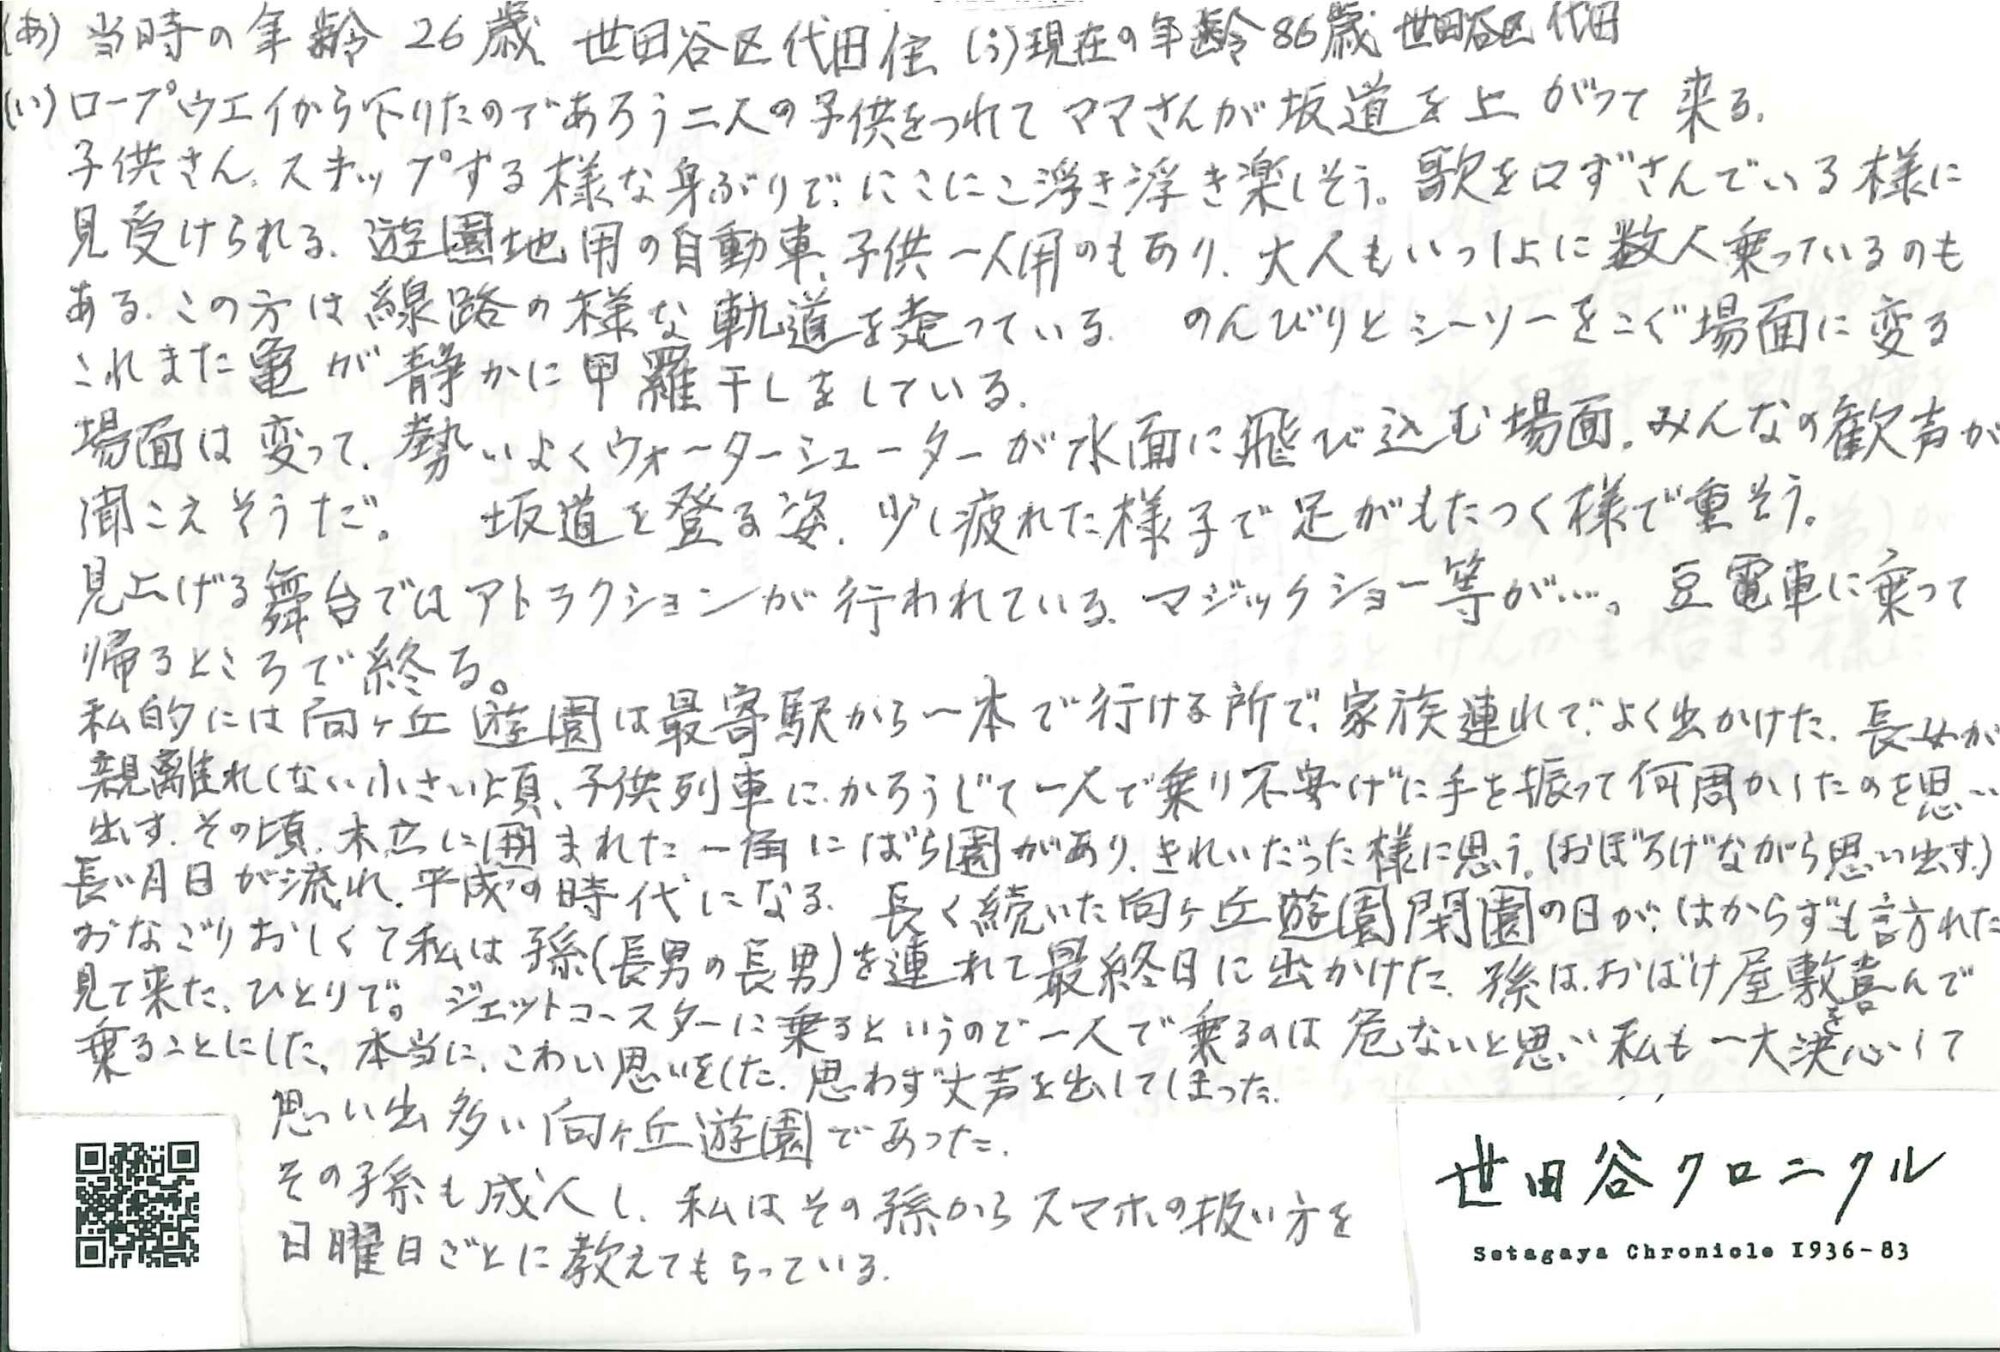 (あ)当時の年齢 26歳 世田谷区代田住 (う)現在の年齢86歳 世田谷区代田
(い)ロープウエイから下りたのであろう二人の子供をつれてママさんが坂道を上がって来る.
子供さん、スキップする様な身ぶりで、にこにこ浮き浮き楽しそう。歌を口ずさんでいる様に
見受けられる. 遊園地用の自動車、子供一人用のもあり、大人もいっしょに数人乗っているのも
ある. この方は線路の様な軌道を走っている. のんびりとシーソーをこぐ場面に変る
これまた亀が静かに甲羅干しをしている.
場面は変って、勢いよくウォーターシューターが水面に飛び込む場面. みんなの歓声が
聞こえそうだ。 坂道を登る姿、少し疲れた様子で足がもたつく様で重そう。
見上げる舞台ではアトラクションが行われている. マジックショー等が…。豆電車に乗って
帰るところで終る。
私的には向ヶ丘遊園は最寄駅から一本で行ける所で、家族連れでよく出かけた. 長女が
親離れしない小さい頃、子供列車に、かろうじて一人で乗り不安げに手を振って何周かしたのを思い
出す. その頃、木立に囲まれた一角にばら園があり、きれいだった様に思う.(おぼろげながら思い出す.)
長い月日が流れ、平成の時代になる. 長く続いた向ヶ丘遊園閉園の日が、はからずも訪れた
おなごりおしくて私は孫(長男の長男)を連れて最終日に出かけた. 孫は、おばけ屋敷を喜んで
見て来た、ひとりで。 ジェットコースターに乗るというので一人で乗るのは危ないと思い私も一大決心して
乗ることにした、本当に、こわい思いをした. 思わず大声を出してしまった.
思い出多い向ヶ丘遊園であった.
その孫も成人し、私はその孫からスマホの扱い方を
日曜日ごとに教えてもらっている.
世田谷クロニクル
Setagaya Chronicle 1936-83